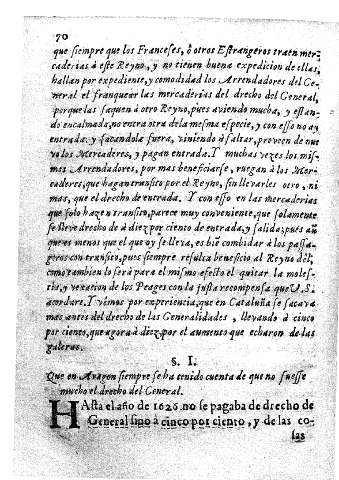 70
que siempre que los Franceses, ò otros Estrangeros traen mer-
caderias à este Reyno, y no tienen buena expedicion de ellas,
hallan por expediente, y comodidad los Arrendadores del Ge-
neral el franquear las mercaderias del drecho del General,
porque las saquen à otro Reyno, pues aviendo mucha, y estan-
do encalmada, no entra otra de la mesma especie, y con esso no ay
entrada: y sacandola fuera, viniendo à faltar, proveen de nue
vo los Mercaderes, y pagan entrada. Y muchas vezes los mis-
mos Arrendadores, por mas beneficiarse, ruegan à los Mer-
caderes, que hagan transito por el Reyno, sin llevarles otro, ni
mas, que el drecho de entrada. Y con esso en las mercaderias
que solo hazen transito, parece muy conveniente, que solamente
se lleve drecho de à diez por ciento de entrada, y salida; pues aũ
que es menos que el que oy se lleva, es biẽ combidar à los passa-
geros con transito, pues siempre resulta beneficio al Reyno del;
como tambien lo serà para el mismo efecto el quitar la moles-
tia, y vexacion de los Peages con la justa recompensa que V.S.
acordare. Y vimos por experiencia, que en Cataluña se sacava
mas antes del drecho de las Generalidades, llevando à cinco
por ciento, que agora à diez, por el aumento que echaron de las
galeras.
§. I.
Que en Aragon siempre se ha tenido cuenta de que no fuesse
mucho el drecho del General.
HAsta el año de 1626. no se pagaba de drecho de
General sino à cinco por ciento, y de las co-
sas